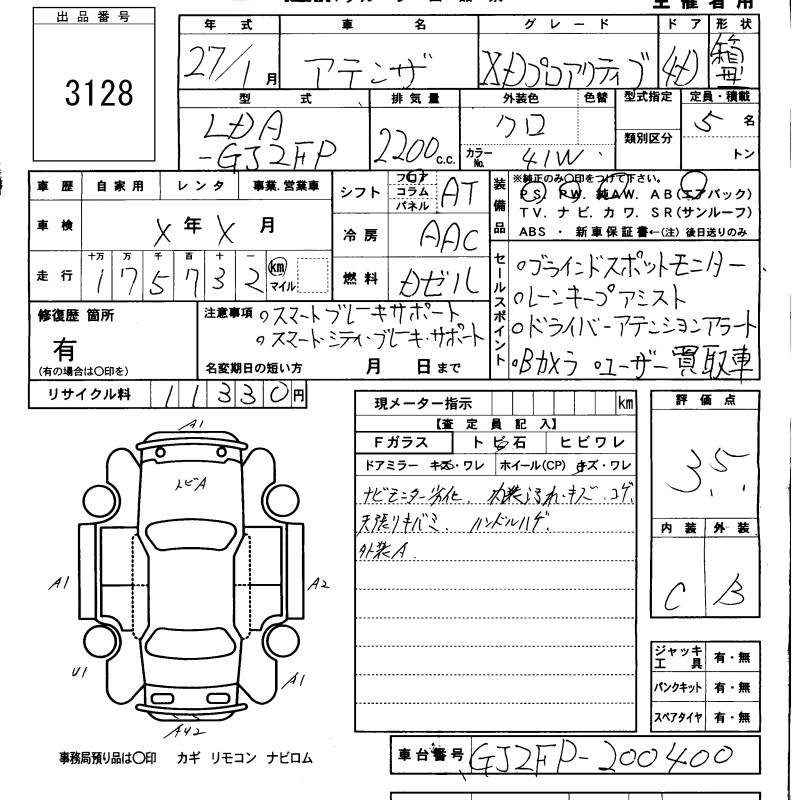 出品番号
3128
年式 車名 グレード ドア 形状
27/1月 アテンザ XDプロアクティブ 4D 箱
型式 排気量 外装色 色替 型式指定 定員・積載
LDA
-GJ2FP 2200c.c. クロ 類別区分 5名
カラーNo. 41W トン
車歴 自家用 レンタ 事業.営業車
車検 X年X月
走行 十万 万 千 百 十 一
175732 km マイル
シフト フロア コラム パネル AT
冷房 AAC
燃料 ディーゼル
装備品 ※純正のみ〇印をつけて下さい。
PS. PW. 純AW. AB(エアバック)
TV. ナビ. カワ. SR(サンルーフ)
ABS ・ 新車保証書←(注) 後日送りのみ
セールスポイント
○ブラインドスポットモニター
○レーンキープアシスト
○ドライバーアテンションアラート
○Bカメラ ○ユーザー買取車
修復歴 箇所
有
(有の場合は〇印を)
注意事項 ○スマートブレーキサポート
○スマート・シティ・ブレーキ・サポート
名変期日の短い方 月 日まで
リサイクル料 11330円
現メーター指示 km
【査定員記入】
Fガラス トビ石 ヒビワレ
ドアミラー キズ・ワレ ホイール(CP) キズ・ワレ
ナビモニター劣化、内装汚れ・キズ・コゲ
天張りキバミ、ハンドルハゲ
外装A
評価点
3.5
内装 外装
C B
ジャッキ工具 有・無
パンクキット 有・無
スペアタイヤ 有・無
A1
トビA
A1
A2
U1
A1
A42
事務局預り品は〇印 カギ リモコン ナビロム
車台番号 GJ2FP-200400